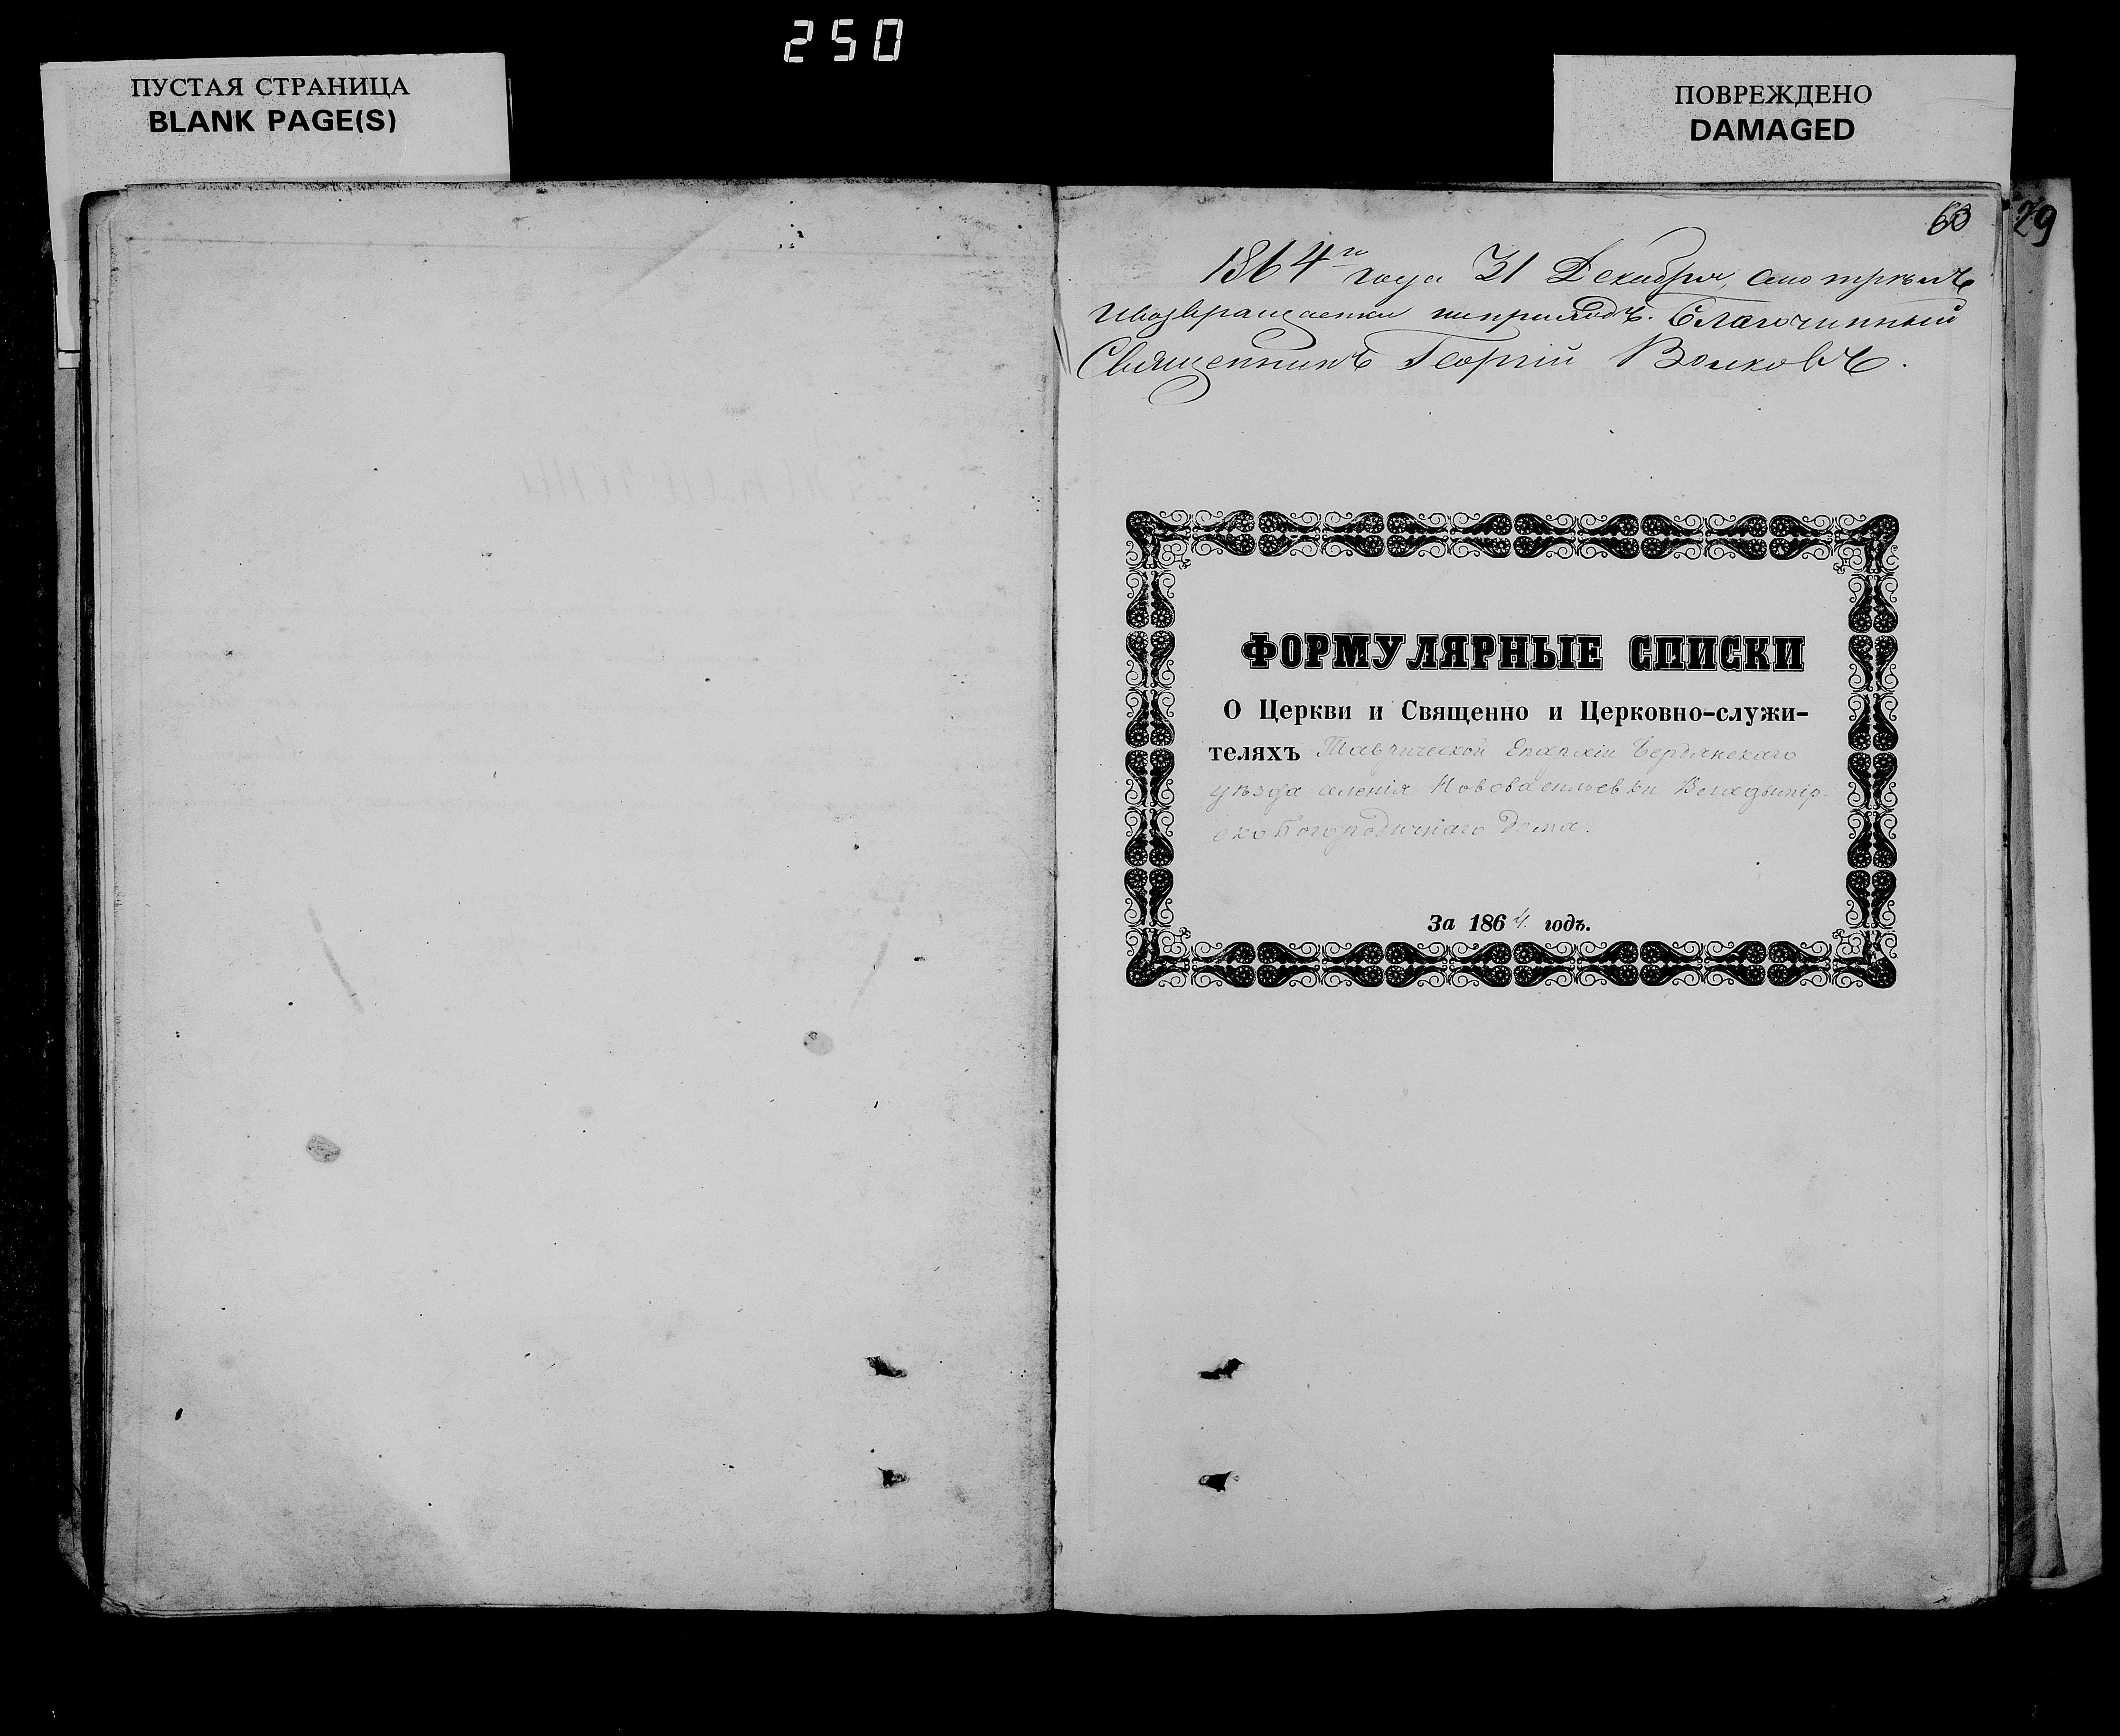 250
ПУСТАЯ СТРАНИЦА
BLANK PAGE(S)
ПОВРЕЖДЕНО
DAMAGED
29
1864го года 31 Декабря, смотрѣлъ
и возвращается на приходъ. Благочинный
Священникъ Георгій Волковъ.
ФОРМУЛЯРНЫЕ СПИСКИ
О Церкви и Священно и Церковно-служи-
теляхъ Таврической Епархіи Бердянскаго
уѣзда селенія Нововасильевки Владимір-
ско Богородичнаго Дома.
За 1864 годъ.